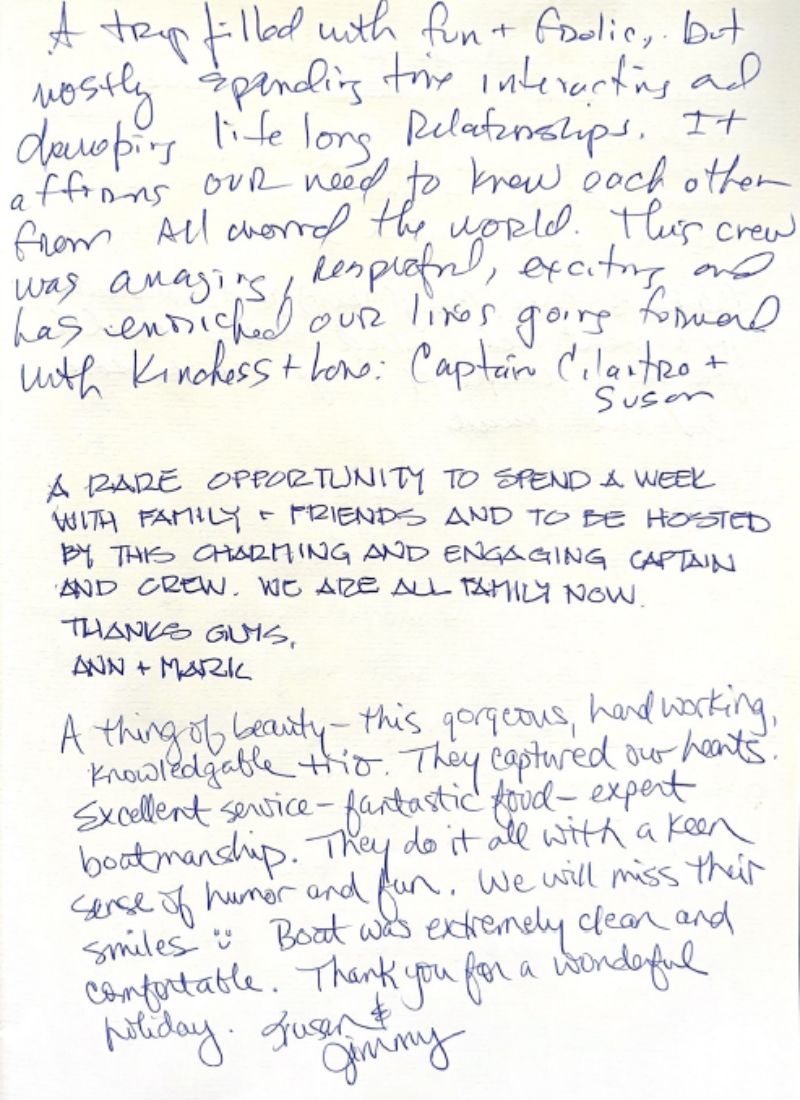 A trip filled with fun + frolic, but
mostly spending time interacting and
developing life long Relationships. It
affirms our need to know each other
from All around the world. This crew
was amazing, respectful, exciting and
has enriched our lives going forward
with Kindness + Love: Captain Cilantro +
Susan
A RARE OPPORTUNITY TO SPEND A WEEK
WITH FAMILY + FRIENDS AND TO BE HOSTED
BY THIS CHARMING AND ENGAGING CAPTAIN
AND CREW. WE ARE ALL FAMILY NOW.
THANKS GUYS,
ANN + MARK
A thing of beauty - this gorgeous, hard working,
knowledgable trio. They captured our hearts.
Excellent service - fantastic food - expert
boatmanship. They do it all with a keen
sense of humor and fun. We will miss their
smiles ü Boat was extremely clean and
comfortable. Thank you for a wonderful
holiday. Susan &
Jimmy